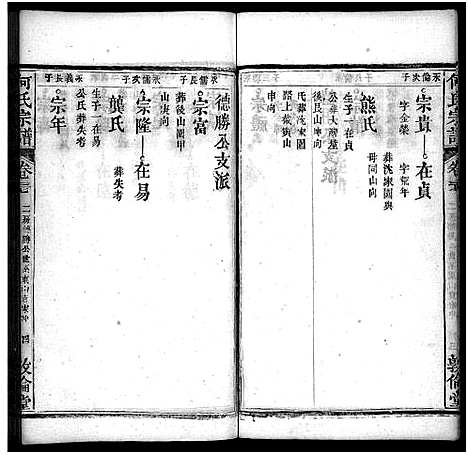 何氏宗譜
卷三
敦倫堂
永倫次子
宗貴——在貞
字金榮
字荒年
葬沈家園與
母同山向
熊氏
生子一在貞
公葬大屋
後艮山坤向
氏葬沈家園
上截寅山
申向
德勝公支派
永儒長子
宗富
葬後山園甲
山庚向
永儒次子
宗隆——在易
葬失考
龔氏
生子一在易
公氏葬失考
永義長子
宗年
何氏宗譜
卷三
四
敦倫堂